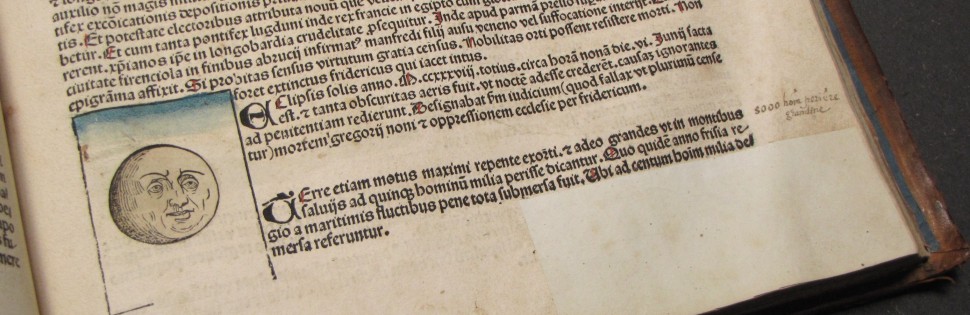 auxilio nõ magis
tifex excõicationis depositionis
tis. Et potestate electoribus attributa nouũ que
betur. Et cum tanta pontifex lugduni inde rex francie in egipto cum
rerent. xp̃ianos ip̃e in longobardia crudelitate ꝓsequitur. Inde apud parmã prelio
ciuitate firenciola in finibus abrucij infirmatꝰ manfredi filij ausu veneno vel suffocatione interijt.
epigrãma affixit. Si probitas sensus virtutum gratia census. Nobilitas orti possent resistere morti. Non
foret extinctus fridericus qui iacet intus.
Eclipsis solis anno. M.ccxxxviij. totius. circa horã nonã die. vi. Junij facta
est. ⁊ tanta obscuritas aeris fuit. vt noctẽ adesse crederẽt. causaꝫ ignorantes
ad penitentiam redierunt. Designabat fm iudicium (quod fallax vt plurimũ cense
tur) mortem gregorij noni ⁊ oppressionem ecclesie per fridericum.
5000
Terre etiam motus maximi repente exorti. ⁊ adeo grandes vt in montibus
saluijs ad quinqꝫ hominũ milia perisse dicantur. Quo quidẽ anno frisia re-
gio a maritimis fluctibus pene tota submersa fuit. Ubi ad centum hoĩm milia de
mersa referuntur.